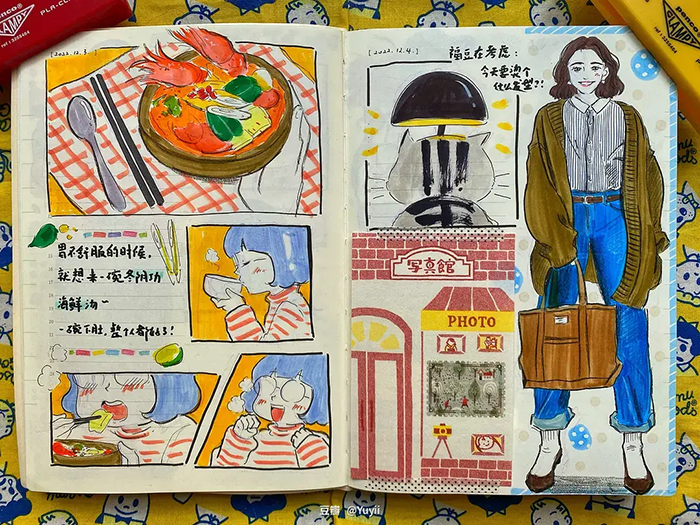 penco
CLAMPY
PLA-CL
penco
CLAMPY
[2022.12.3.]
胃不舒服的时候,
就想来一碗冬阴功
海鲜汤~
一碗下肚,整个人都好了!
[2022.12.4.]
福豆在考虑:
今天要烫个
什么发型?!
写真館
PHOTO
豆瓣 @Yuyii